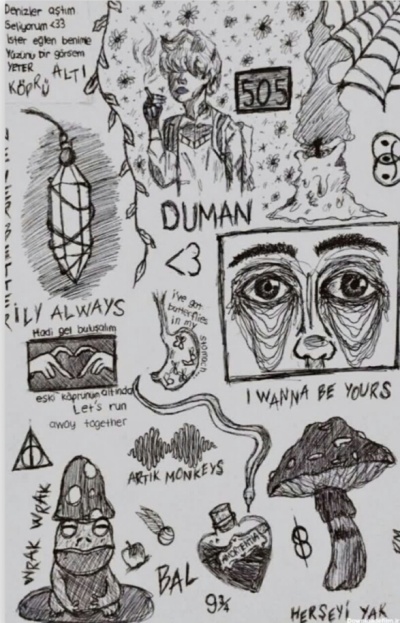 Denizler aştım
Geliyorum <33
ister eğlen benimle
Yüzünü bir görsem
YETER
KÖPRÜ ALTI
505
DUMAN
<3
İLY ALWAYS
i've got
butterflies
in my
stomach
Hadi gel buluşalım
eski köprünün altında
Let's run
away together
I WANNA BE YOURS
ARTIK MONKEYS
VRAK WRAK
BAL
9¾
HERŞEYİ YAK